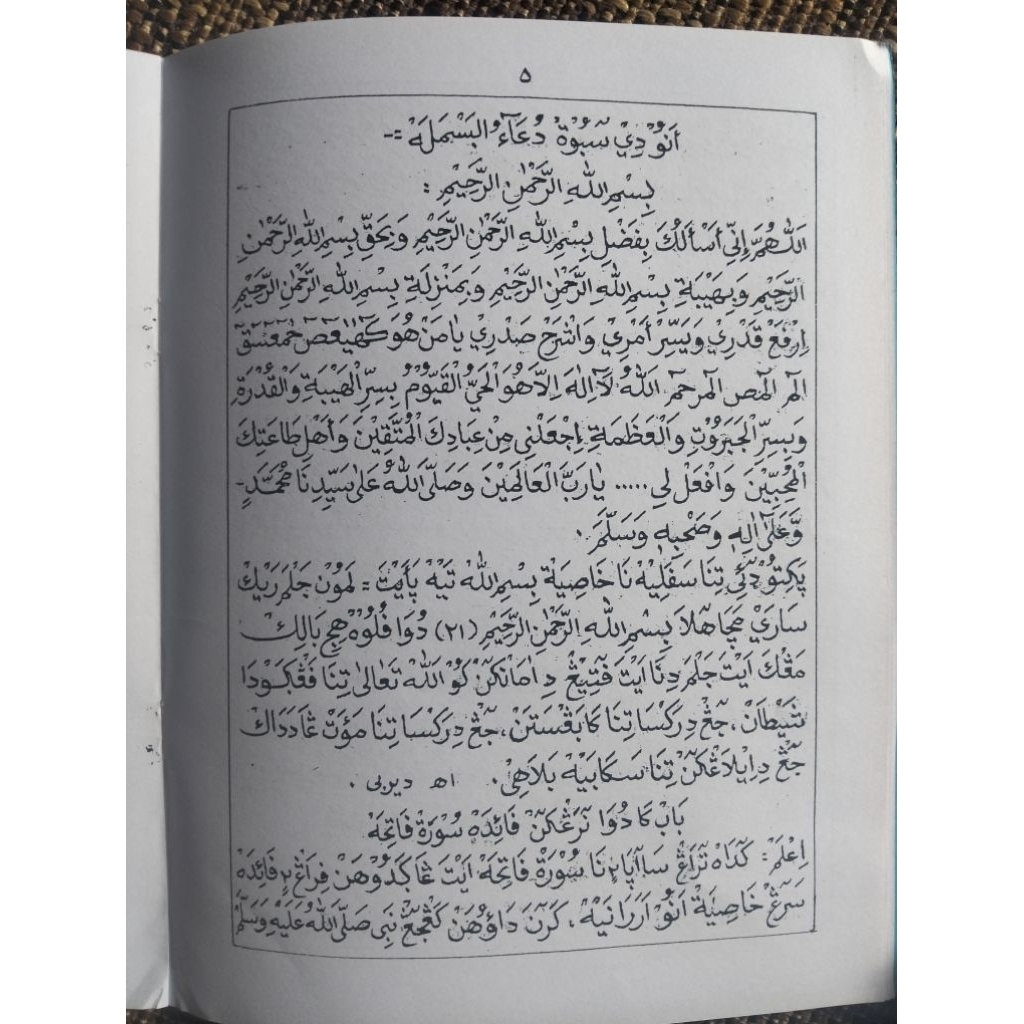 ٥
اَنُوْدِيْ سٓبُوْةْ دُعَآءُ الْبَسْمَلَهْ =-
بِسْمِ اللهِ الرَّحْمٰنِ الرَّحِيْمِ :
اَللّٰهُمَّ إِنِّيْ أَسْأَلُكَ بِفَضْلِ بِسْمِ اللهِ الرَّحْمٰنِ الرَّحِيْمِ وَبِحَقِّ بِسْمِ اللهِ الرَّحْمٰنِ
الرَّحِيْمِ وَبِهَيْبَةِ بِسْمِ اللهِ الرَّحْمٰنِ الرَّحِيْمِ وَبِمَنْزِلَةِ بِسْمِ اللهِ الرَّحْمٰنِ الرَّحِيْمِ
اِرْفَعْ قَدْرِيْ وَيَسِّرْ أَمْرِيْ وَاشْرَحْ صَدْرِيْ يَامَنْ هُوَ كٓهٰيٰعٓصٓ حٰمٓعٓسٓقٓ
الٓمٓ الٓمٓصٓ الٓمٓرحمٓ اَللهُ لَآ اِلٰهَ اِلاَّ هُوَ الْحَيُّ الْقَيُّوْمُ بِسِرِّ الْهَيْبَةِ وَالْقُدْرَةِ
وَبِسِرِّ الْجَبَرُوْتِ وَالْعَظَمَةِ اِجْعَلْنِيْ مِنْ عِبَادِكَ الْمُتَّقِيْنَ وَأَهْلِ طَاعَتِكَ
الْمُحِبِّيْنَ وَافْعَلْ لِي ..... يَارَبَّ الْعَالَمِيْنَ وَصَلَّى اللهُ عَلٰى سَيِّدِنَا مُحَمَّدٍ-
وَّعَلٰىٓ اٰلِهٖ وَصَحْبِهٖ وَسَلَّمَ .
پَكِتُوْدٓئِيْ تِنَا سَفَلِيْهْ نَا خَاصِيَةْ بِسْمِ اللهْ تَيْهْ پَأَيْتَ = لَمَوْنْ جَلْمَ رَيْكْ
سَارَيْ مَچَاهٓلَا بِسْمِ اللهِ الرَّحْمٰنِ الرَّحِيْمِ (٢١) دُوَا فُلُوْهْ هِجِ بَالِكْ
مَڠْكَ اَيْتَ جَلْمَ دِنَا اَيْتَ فٓتِيْڠْ دِ اَمَانْكٓنْ كُوْ اللهْ تَعَالٰى تِنَا فَڠْڮَوْدَا
شَيْطَانْ، جٓڠْ دِرَكْسَا تِنَا كَابَڠْسَتَنْ، جٓڠْ دِرَكْسَا تِنَا مَؤَتْ ڠَادَدَاكْ
جٓڠْ دِاِيْلَاڠْكٓنْ تِنَا سَكَابَيْهْ بَلَاهِيْ . اﻫ ديربى .
بَابْ كَا دُوَا نٓرَڠْكٓنْ فَائِدَهْ سُوْرَةْ فَاتِحَهْ
اِعْلَمْ : كُدَاهْ تٓرَاڠْ سَاآيَا٢ نَا سُوْرَةْ فَاتِحَهْ اَيْتَ ڠَاڮَدُوْهَنْ فِرَاڠْ٢ فَائِدَهْ
سَرٓڠْ خَاصِيَةْ اَنُوْ اَرَرَانَيْهْ، كَرَنَ دَاوُهَنْ كَڠْجٓڠْ نَبِى صَلَّى اللهُ عَلَيْهِ وَسَلَّمَ